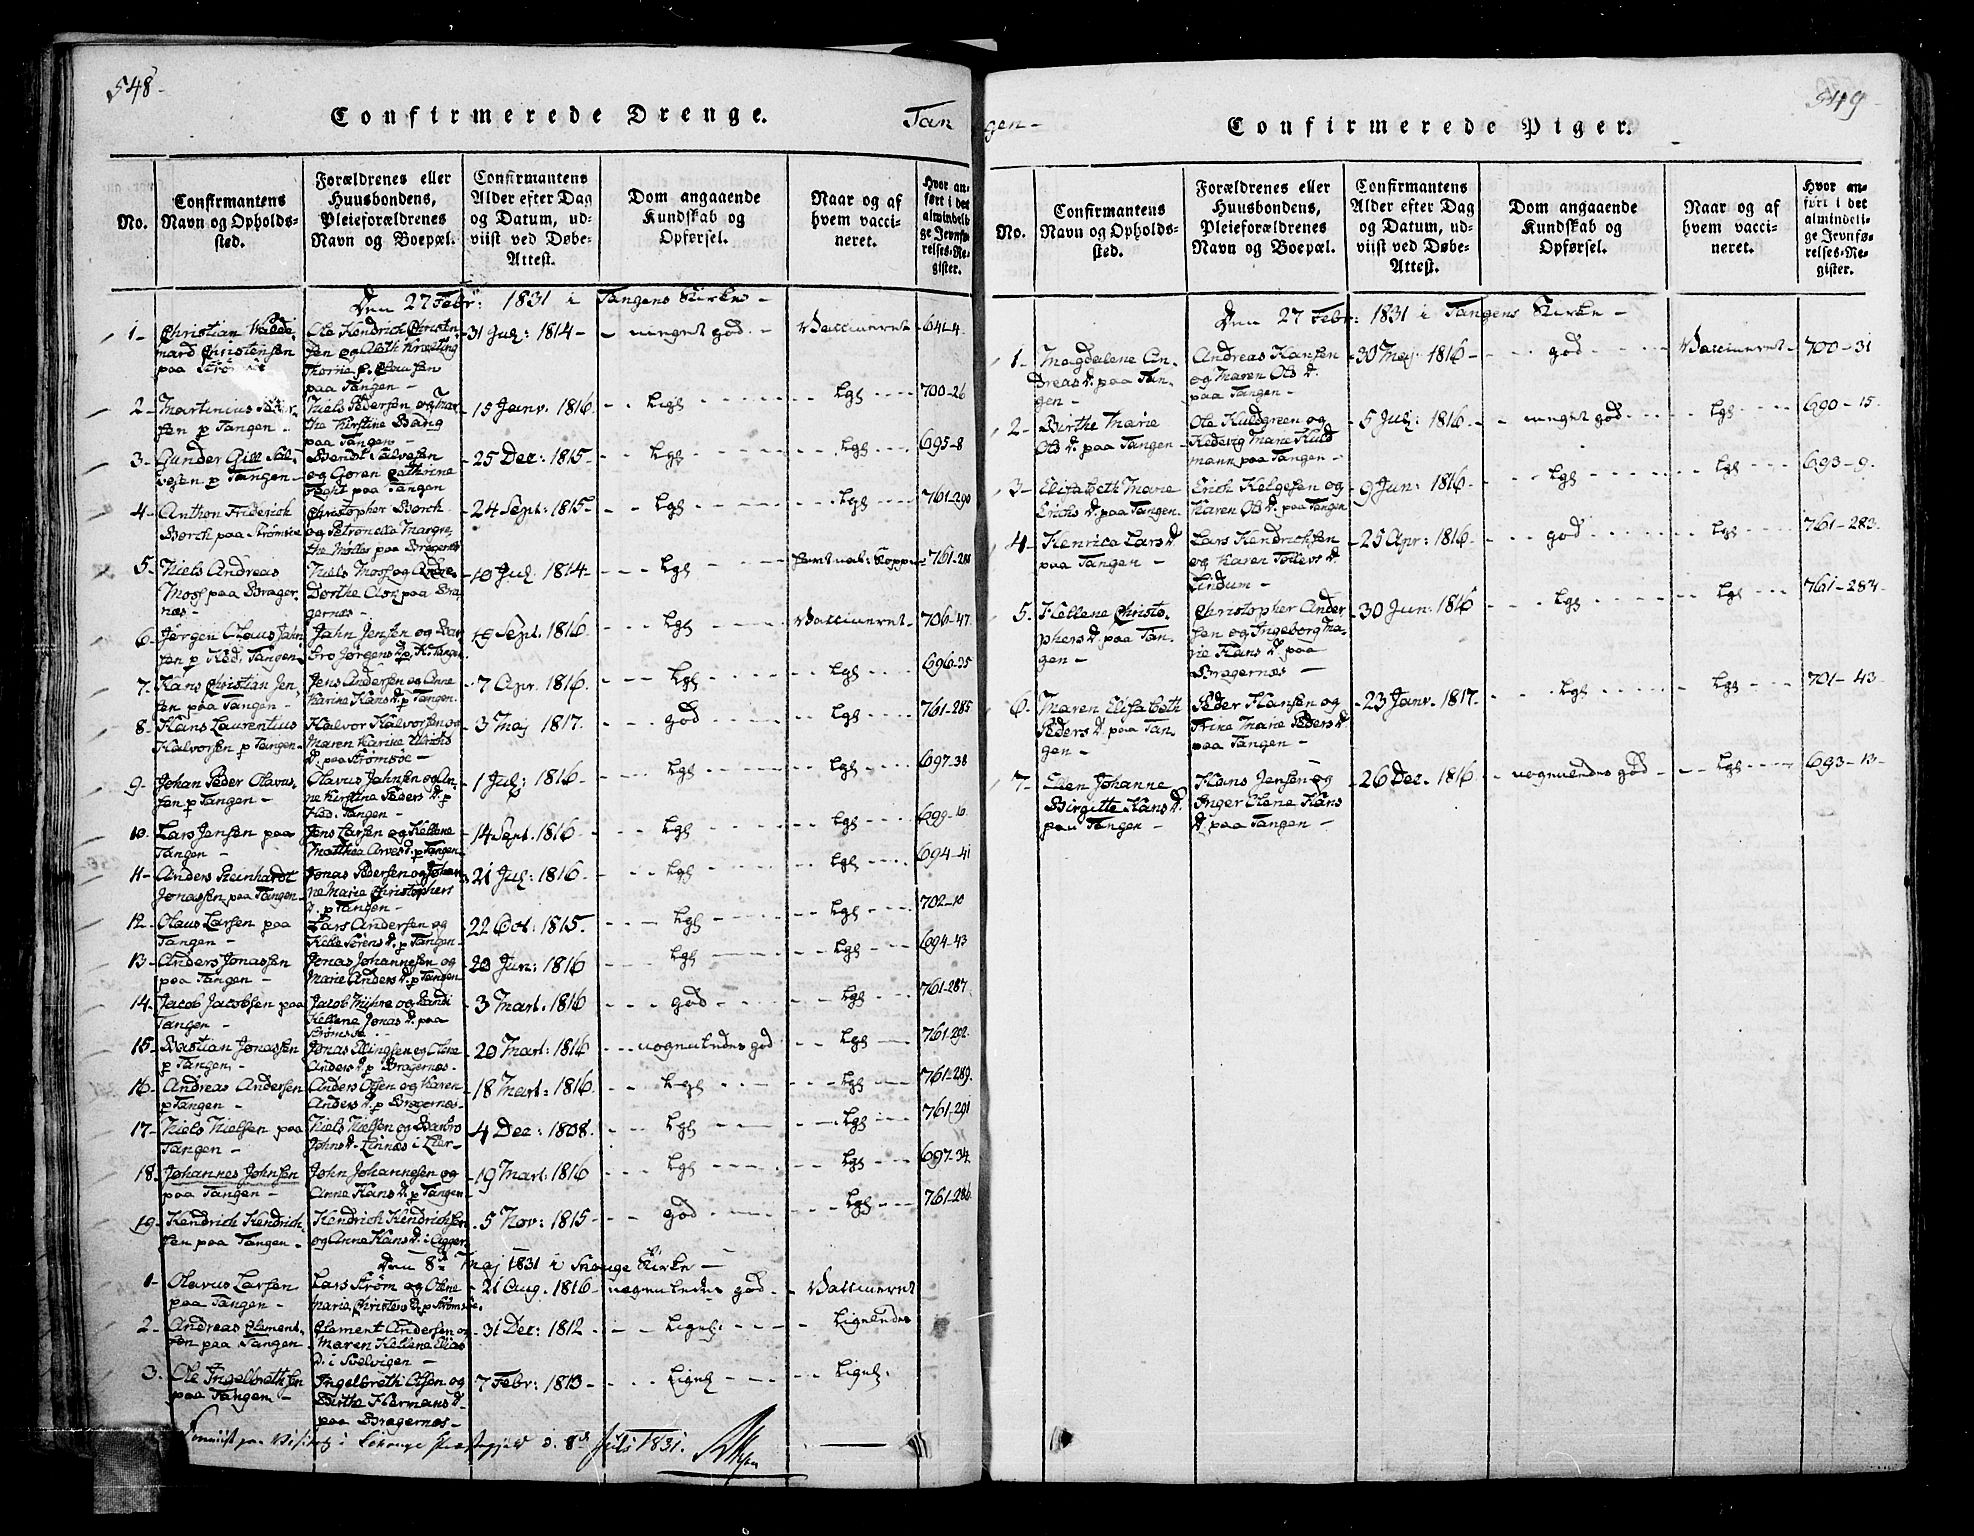 548-
Confirmerede Drenge.
Tan
No.
Confirmantens
Navn og Opholds-
sted.
Forældrenes eller
Huusbondens,
Pleieforældrenes
Navn og Boepæl.
Confirmantens
Alder efter Dag
og Datum, ud-
viist ved Døbe-
Attest.
Dom angaaende
Kundskab og
Opførsel.
Naar og af
hvem vacci-
neret.
Hvor an-
ført i det
almindeli-
ge Jevnfø-
relses-Re-
gister.
Den 27 Febr: 1831 i Tangens Kirke -
1-
Christian
mard Christensen
paa Strømsøe
Ole Hendrich Christen-
sen og
Thorne p.
paa Tangen -
31 Jul: 1814 -
meget god -
Vaccineret
641-4
2-
Martinius
sen p Tangen -
Niels Pedersen og Mar-
the Kirstine Bang
paa Tangen -
15 Janv. 1816
Lgs
Lgs
700-26
3-
Gunder Sal-
vesen p Tangen -
Bendt Salvesen
og Goren Cathrine
paa Tangen
25 Dec: 1815
Lgs
Lgs
695-8
4-
Anthon Friderich
Borch paa Strømsøe
Christopher Borch
og Petronella Margre-
the paa Bragernæs
24 Sept: 1815
Lgs
Lgs
761-290
5-
Niels Andreas
Moss paa Brager-
næs -
Niels Moss og
Dorthe paa Bra-
gernæs -
10 Jul: 1814
Lgs
761-288
6-
Jørgen Olaus Jahn-
sen p Hed. Tangen
Jahn Jensen og Bar-
bro Jørgens d. p. H. Tangen
19 Sept. 1816
Lgs
Vaccineret
706-47
7-
Hans Christian Jen-
sen paa Tangen -
Jens Andersen og Anne
Karine Hans d. p Tangen
7 Apr. 1816
Lgs
Lgs
696-35
8-
Hans Laurentius
Halvorsen p Tangen
Halvor Halvorsen og
Maren Karine
d. paa Strømsøe -
3 Maj 1817
god
Lgs
761-285
9-
Johan Peder Olavus-
sen p Tangen -
Olavus Jahnsen og An-
ne Kirstine Peders d. p
Hed. Tangen -
1 Jul: 1816
Lgs
Lgs
697-38
10-
Lars Jensen paa
Tangen -
Jens Larsen og Hellene
Matthea d. p Tangen
14 Sept. 1816
Lgs
Lgs
699-10
11-
Anders Reinhardt
Jonassen paa Tangen
Jonas Pedersen og Johan-
ne Marie Christophers
d. p Tangen -
21 Jul: 1816
Lgs
Lgs
694-41
12-
Olaus Larsen paa
Tangen -
Lars Andersen og
Helle Sørens d. p Tangen
22 Oct: 1815
Lgs
Lgs
702-10
13-
Anders Jonassen
paa Tangen -
Jonas Johannesen og
Marie Anders d. p Tangen
20 Jun: 1816
Lgs
Lgs
694-43
14-
Jacob Jacobsen paa
Tangen -
Jacob og Randi
Hellene Jonas d. paa
Strømsøe
3 Mart. 1816
god
Lgs
761-287
15-
Bastian Jonassen
p Tangen -
Jonas Ellingsen og Oline
Anders d. p Bragernæs -
20 Mart: 1816
nogenledes god
Lgs
761-292
16-
Andreas Andersen
p Tangen -
Anders Olsen og Karen
Anders d. p Bragernæs
18 Mart: 1816
Lgs
Lgs
761-289
17-
Niels Nielsen paa
Tangen -
Niels Nielsen og Barbro
Johns d. Linnæs i Lier -
4 Dec: 1808
Lgs
Lgs
761-291
18-
Johannes Johnsen
paa Tangen -
John Johannesen og
Anne Hans d. p Tangen
19 Mart: 1816
Lgs
Lgs
697-34
19-
Hendrich Hendrich-
sen paa Tangen -
Hendrich Hendrichsen
og Anne Hans d. i Agger
5 Nov: 1815
god
Lgs
761-286
Den 8de Maj 1831 i Skouge Kirke -
1-
Olavus Larsen
paa Tangen -
Lars Strøm og Oline
Marie Christens d. p Strømsøe
21 Aug. 1816
nogenledes god
Vaccineret
2-
Andreas Clement-
sen paa Tangen
Clement Andersen og
Maren Hellene Elias
d. i Svelvigen -
31 Dec: 1812
Lignl:
Lignendes
3-
Ole Ingelbrethsen
paa Tangen -
Ingelbreth Olsen og
Birthe Hermans d.
paa Bragernæs -
7 Febr: 1813
Lignl.
Lignl.
paa Visitatz i Schouge Præstegjeld d. 8d Juli 1831.
549
gen-
Confirmerede Piger.
No.
Confirmantens
Navn og Opholds-
sted.
Forældrenes eller
Huusbondens,
Pleieforældrenes
Navn og Boepæl.
Confirmantens
Alder efter Dag
og Datum, ud-
viist ved Døbe-
Attest.
Dom angaaende
Kundskab og
Opførsel.
Naar og af
hvem vacci-
neret.
Hvor an-
ført i det
almindeli-
ge Jevnfø-
relses-Re-
gister.
Den 27 Febr: 1831 i Tangens Kirke -
1-
Magdalene An-
dreas d. paa Tan-
gen -
Andreas Hansen
og Maren Ols d.
paa Tangen -
30 Maj 1816
god
Vaccineret
700-31
2-
Birthe Marie
Ols d. paa Tangen
Ole Huldgreen og
Hedevig Marie Huld
mann paa Tangen -
5 Jul: 1816
meget god
Lgs
690-15
3-
Elisabeth Marie
Erichs d. paa Tangen
Erich Helgesen og
Karen Ols d. paa Tangen
9 Jun: 1816
Lgs
Lgs
693-9
4-
Henrica Lars d.
paa Tangen -
Lars Hendrichsen
og Karen Tollevs d.
Lindum -
25 Apr: 1816
god
Lgs
761-283
5.
Hellene Christo-
phers d. paa Tan-
gen -
Christopher Ander
sen og Ingeborg Ma-
rie Hans d. paa
Bragernæs -
30 Jun: 1816
Lgs
Lgs
761-284
6-
Maren Elisabeth
Peders d. paa Tan-
gen -
Peder Hansen og
Trine Marie Peders d.
paa Tangen -
23 Janv. 1817
Lgs
Lgs
701-43
7-
Ellen Johanne
Birgitte Hans d.
paa Tangen -
Hans Jensen og
Inger Olene Hans
d. paa Tangen -
26 Dec. 1816
nogenledes god
Lgs
693-13